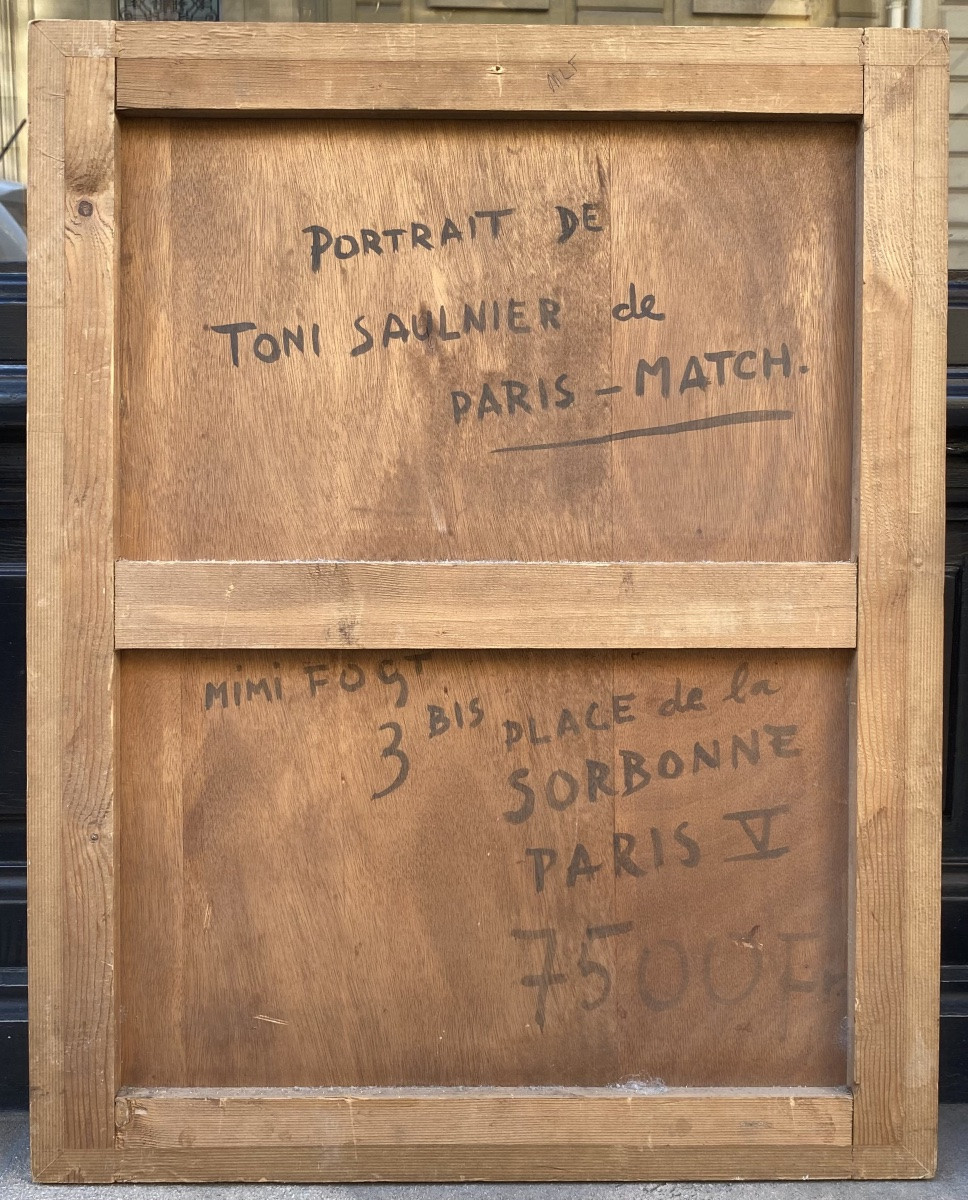 MLF
PORTRAIT DE
TONI SAULNIER de
PARIS - MATCH.
MIMI FOGT
3 BIS PLACE de la
SORBONNE
PARIS V
7500 Fr